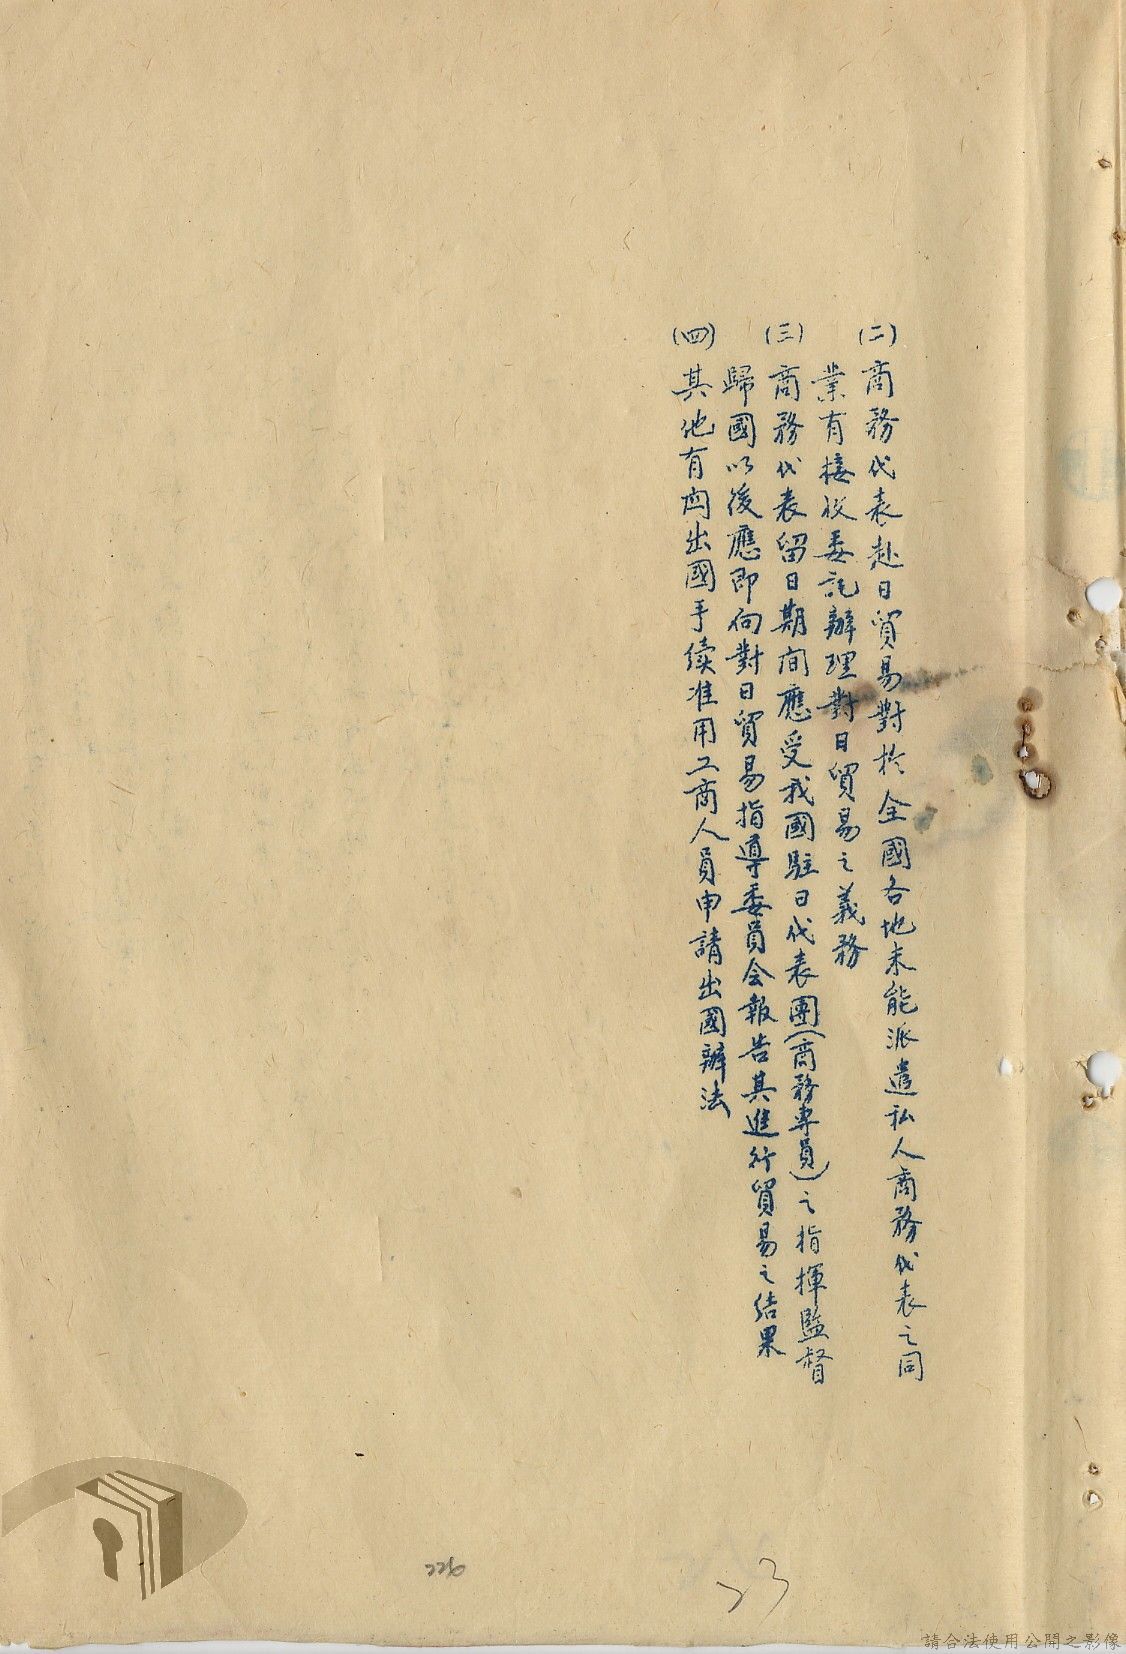 (二)商務代表赴日貿易對於全國各地未能派遣私人商務代表之同
業有接收委託辦理對日貿易之義務
(三)商務代表留日期间應受我國駐日代表團(商務專員)之指揮監督
歸國以後應即向對日貿易指導委員会報告其進行貿易之結果
(四)其他有関出國手續准用工商人員申請出國辦法
226
23
請合法使用公開之影像